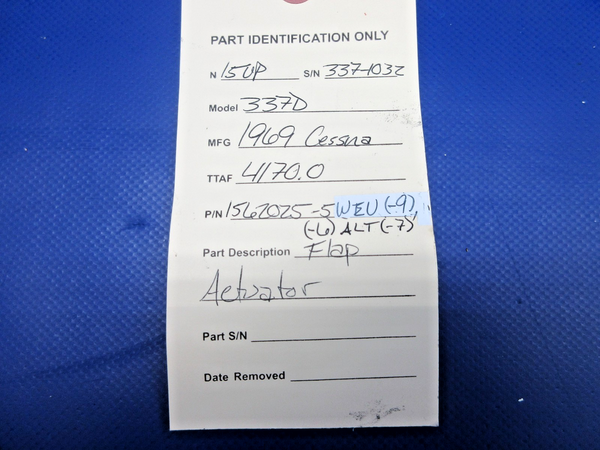 PART IDENTIFICATION ONLY
N 15UP S/N 337-1032
Model 337D
MFG 1969 Cessna
TTAF 4170.0
P/N 1562025-5 WEU (-9)
(-6) ALT (-7)
Part Description Flap
Actuator
Part S/N
Date Removed